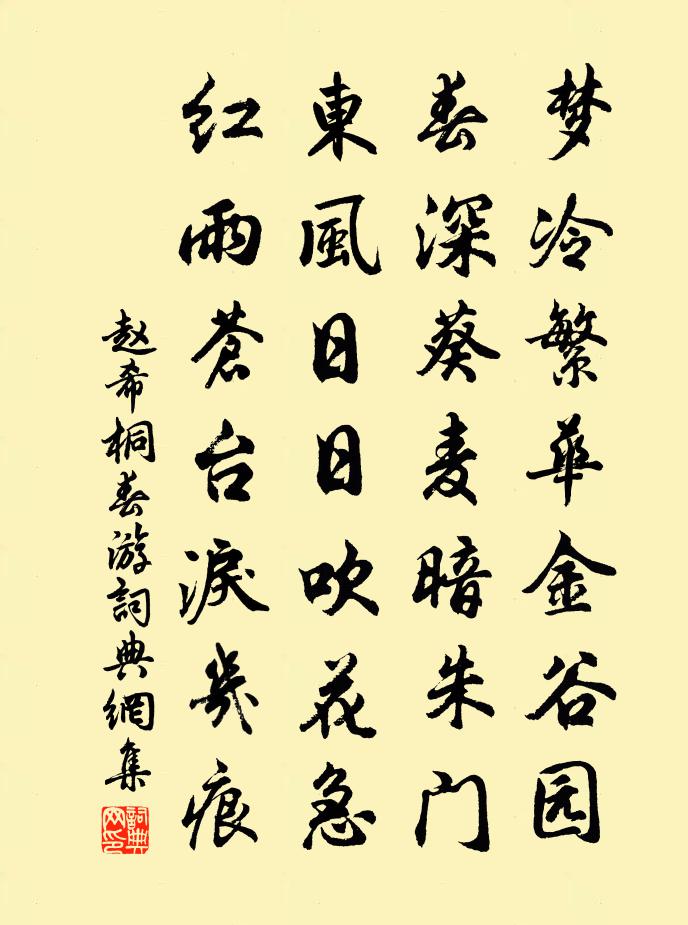 梦冷繁华金谷园
春深葵麦暗朱门
東風日日吹花急
红雨蒼台淚幾痕
赵希桐春游詞典網集
詞典网印